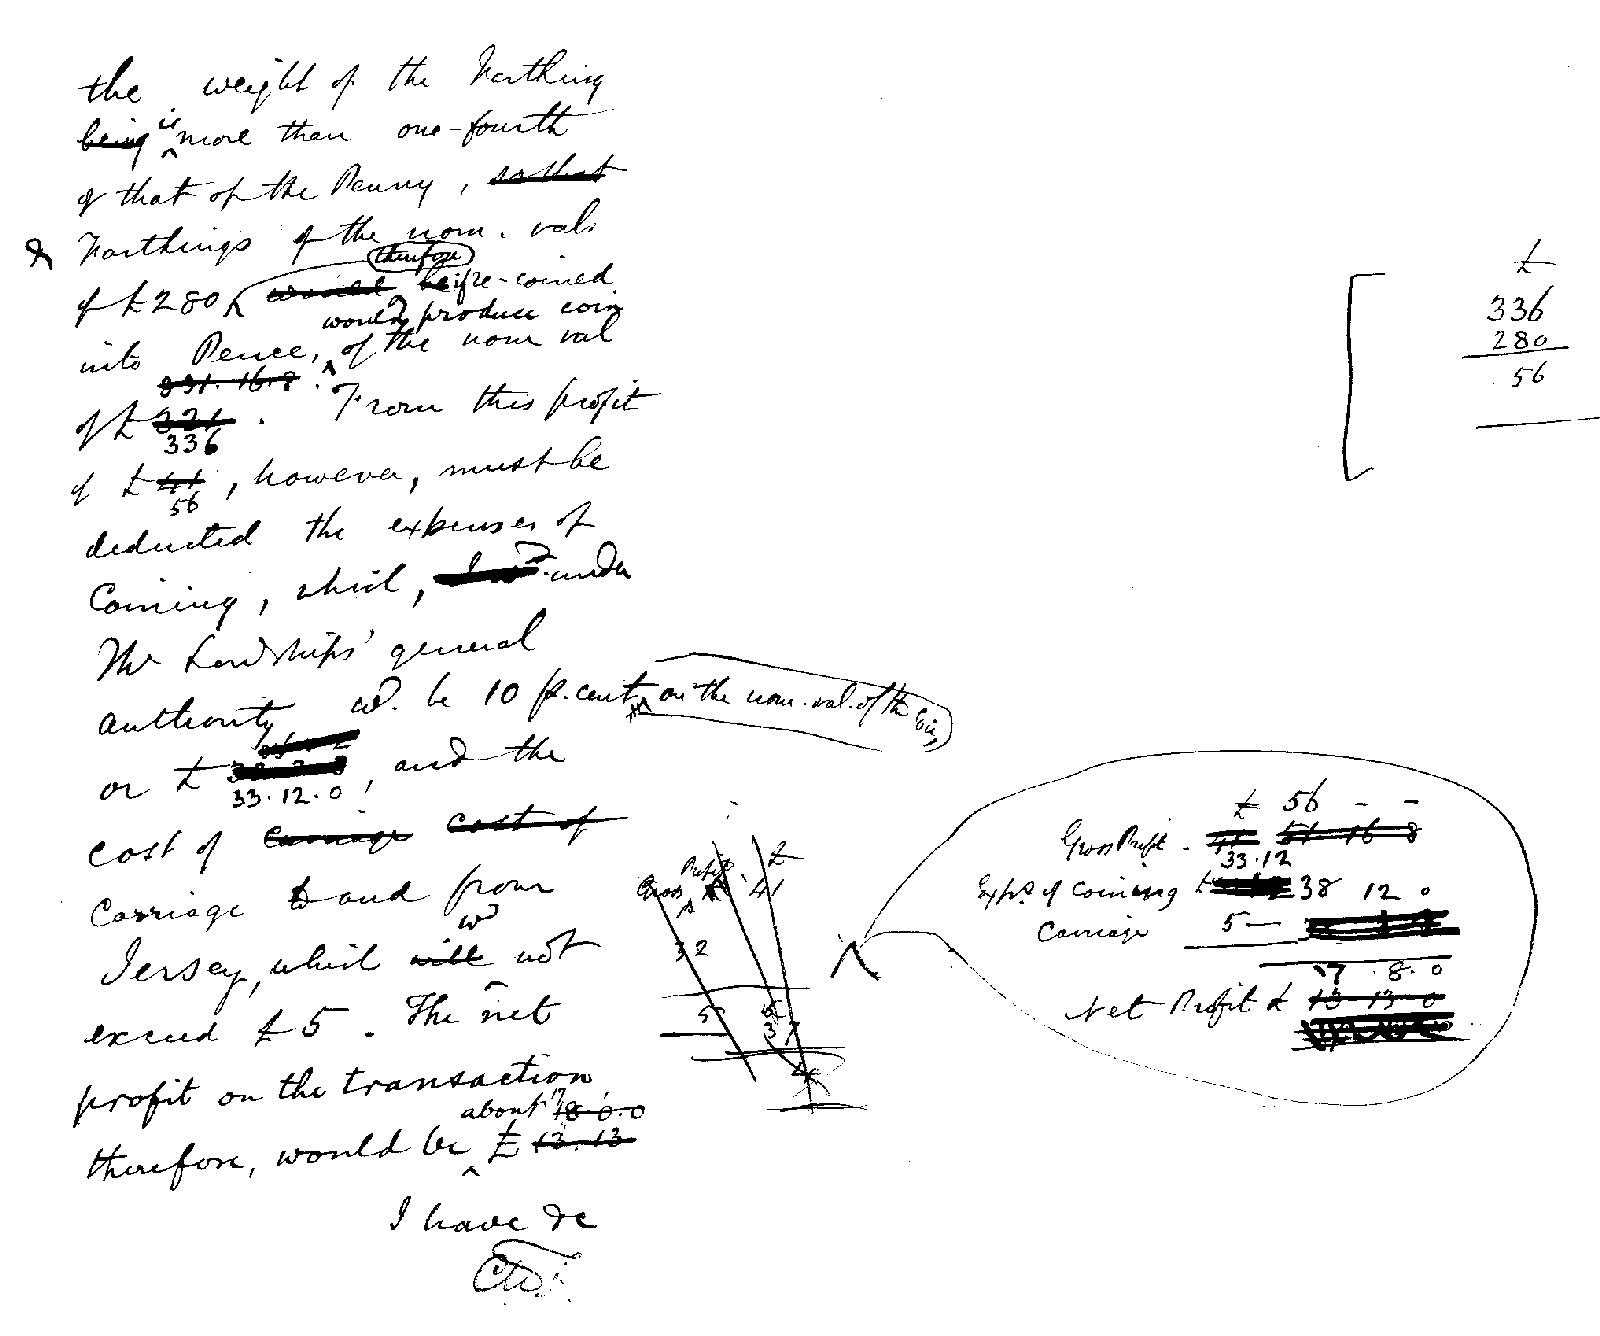 the weight of the Farthing
being is more than one-fourth
of that of the Penny, so that
& Farthings of the nom. val.
therefore
of £280 would be if re-coined
would produce coin
into Pence, of the nom val
331.16.8
of £ 321. From this profit
336
of £ 41, however, must be
56
deducted the expenses of
Coining, which, under
Their Lordships' general
authority wd. be 10 p. cent on the nom. val. of the Coin,
or £ , and the
33.12.0
cost of carriage cost of
Carriage to and from
wd
Jersey, which will not
exceed £5. The net
profit on the transaction
about 17 8 0.0
therefore, would be £ 13.13
I have &c
£
336
280
56
Profit £
Gross 41
32
5 5
37
4
£ 56 - -
Gross Profit - 41 51 16 8
33.12
Exps. of Coining £ 38 12 0
Carriage 5 —
17 . 8. 0
Net Profit £ 13 13 0